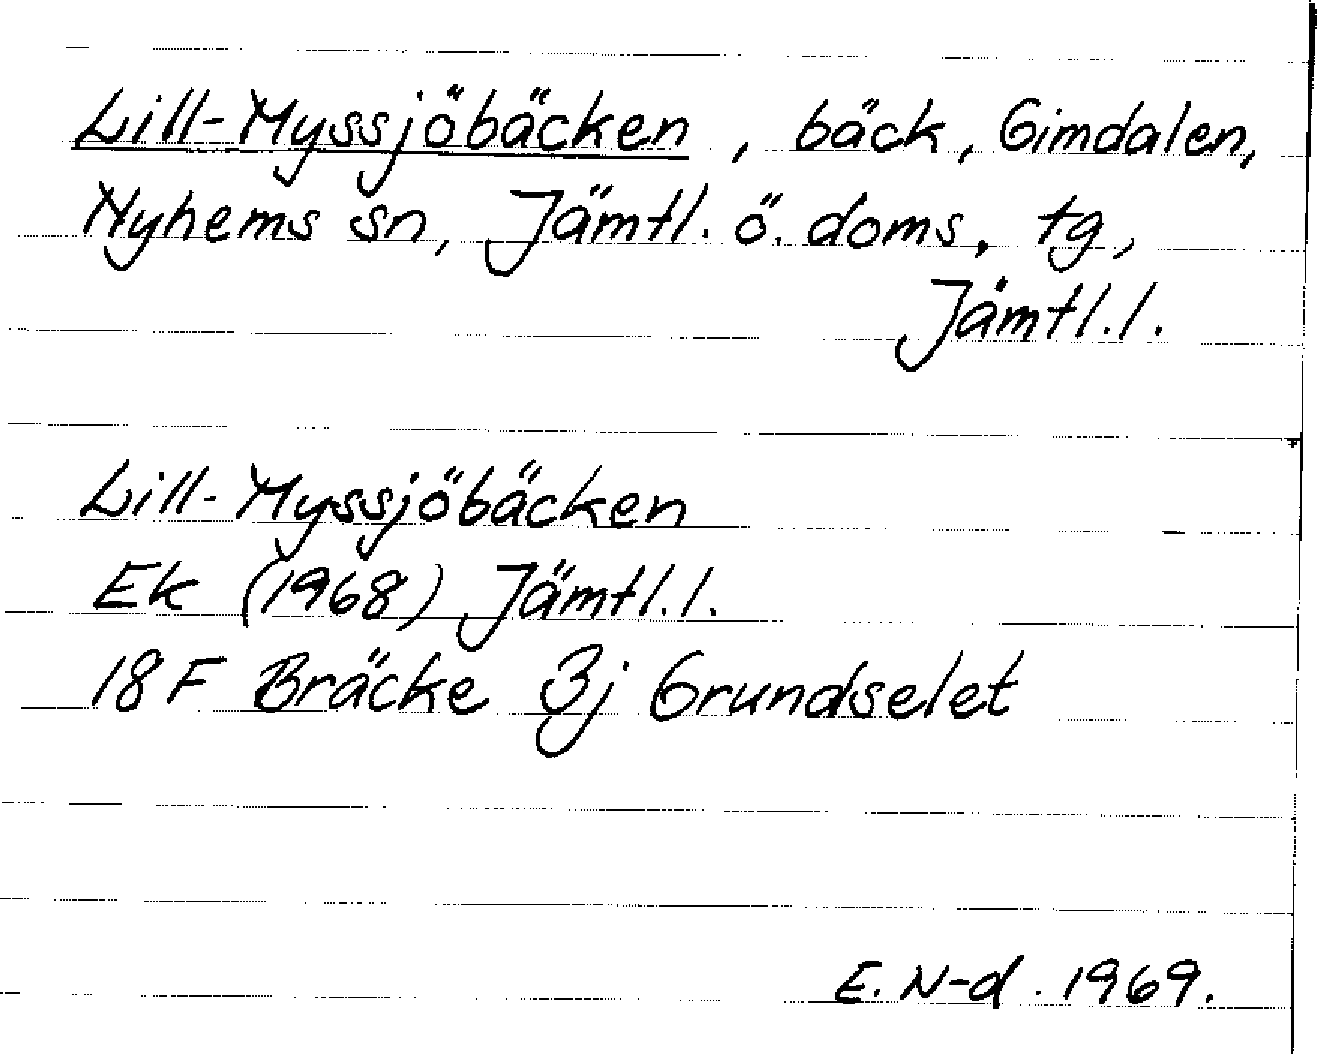 Lill-Myssjöbäcken, bäck, Gimdalen,
Nyhems sn, Jämtl. ö. doms. tg,
Jämtl.l.
Lill-Myssjöbäcken
Ek (1968) Jämtl.l.
18 F Bräcke 3j Grundselet
E. N-d. 1969.